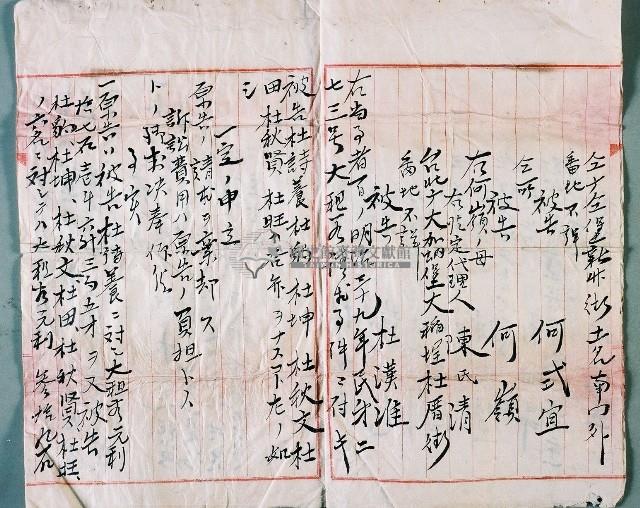 仝廳仝堡新竹街土名南門外
番地不詳
被告 何弌宜
仝所
被告 何嶺
右何嶺ノ母
右法定代理人 陳氏清
台北廳大加蚋堡大稻埕杜厝街
番地不詳
被告 杜漢淮
右當事者間ノ明治三十九年民第二
七三号大租 件ニ付キ
被告杜詩養杜 杜坤杜秋文杜
田杜秋賢杜旺 答弁ヲナス下左ノ如
シ
一定ノ申立
原告ノ請求ヲ棄却ス
訴訟費用ハ原告ノ負担トス
トノ 判決奉仰候
事実
一原告ハ被告杜詩養ニ対シ大租谷元利
七石壱斗六升三合五才ヲ又被告
杜 杜坤、杜秋文杜田杜秋賢杜旺、
ノ六名ニ対シテハ大租谷元利 拾九石